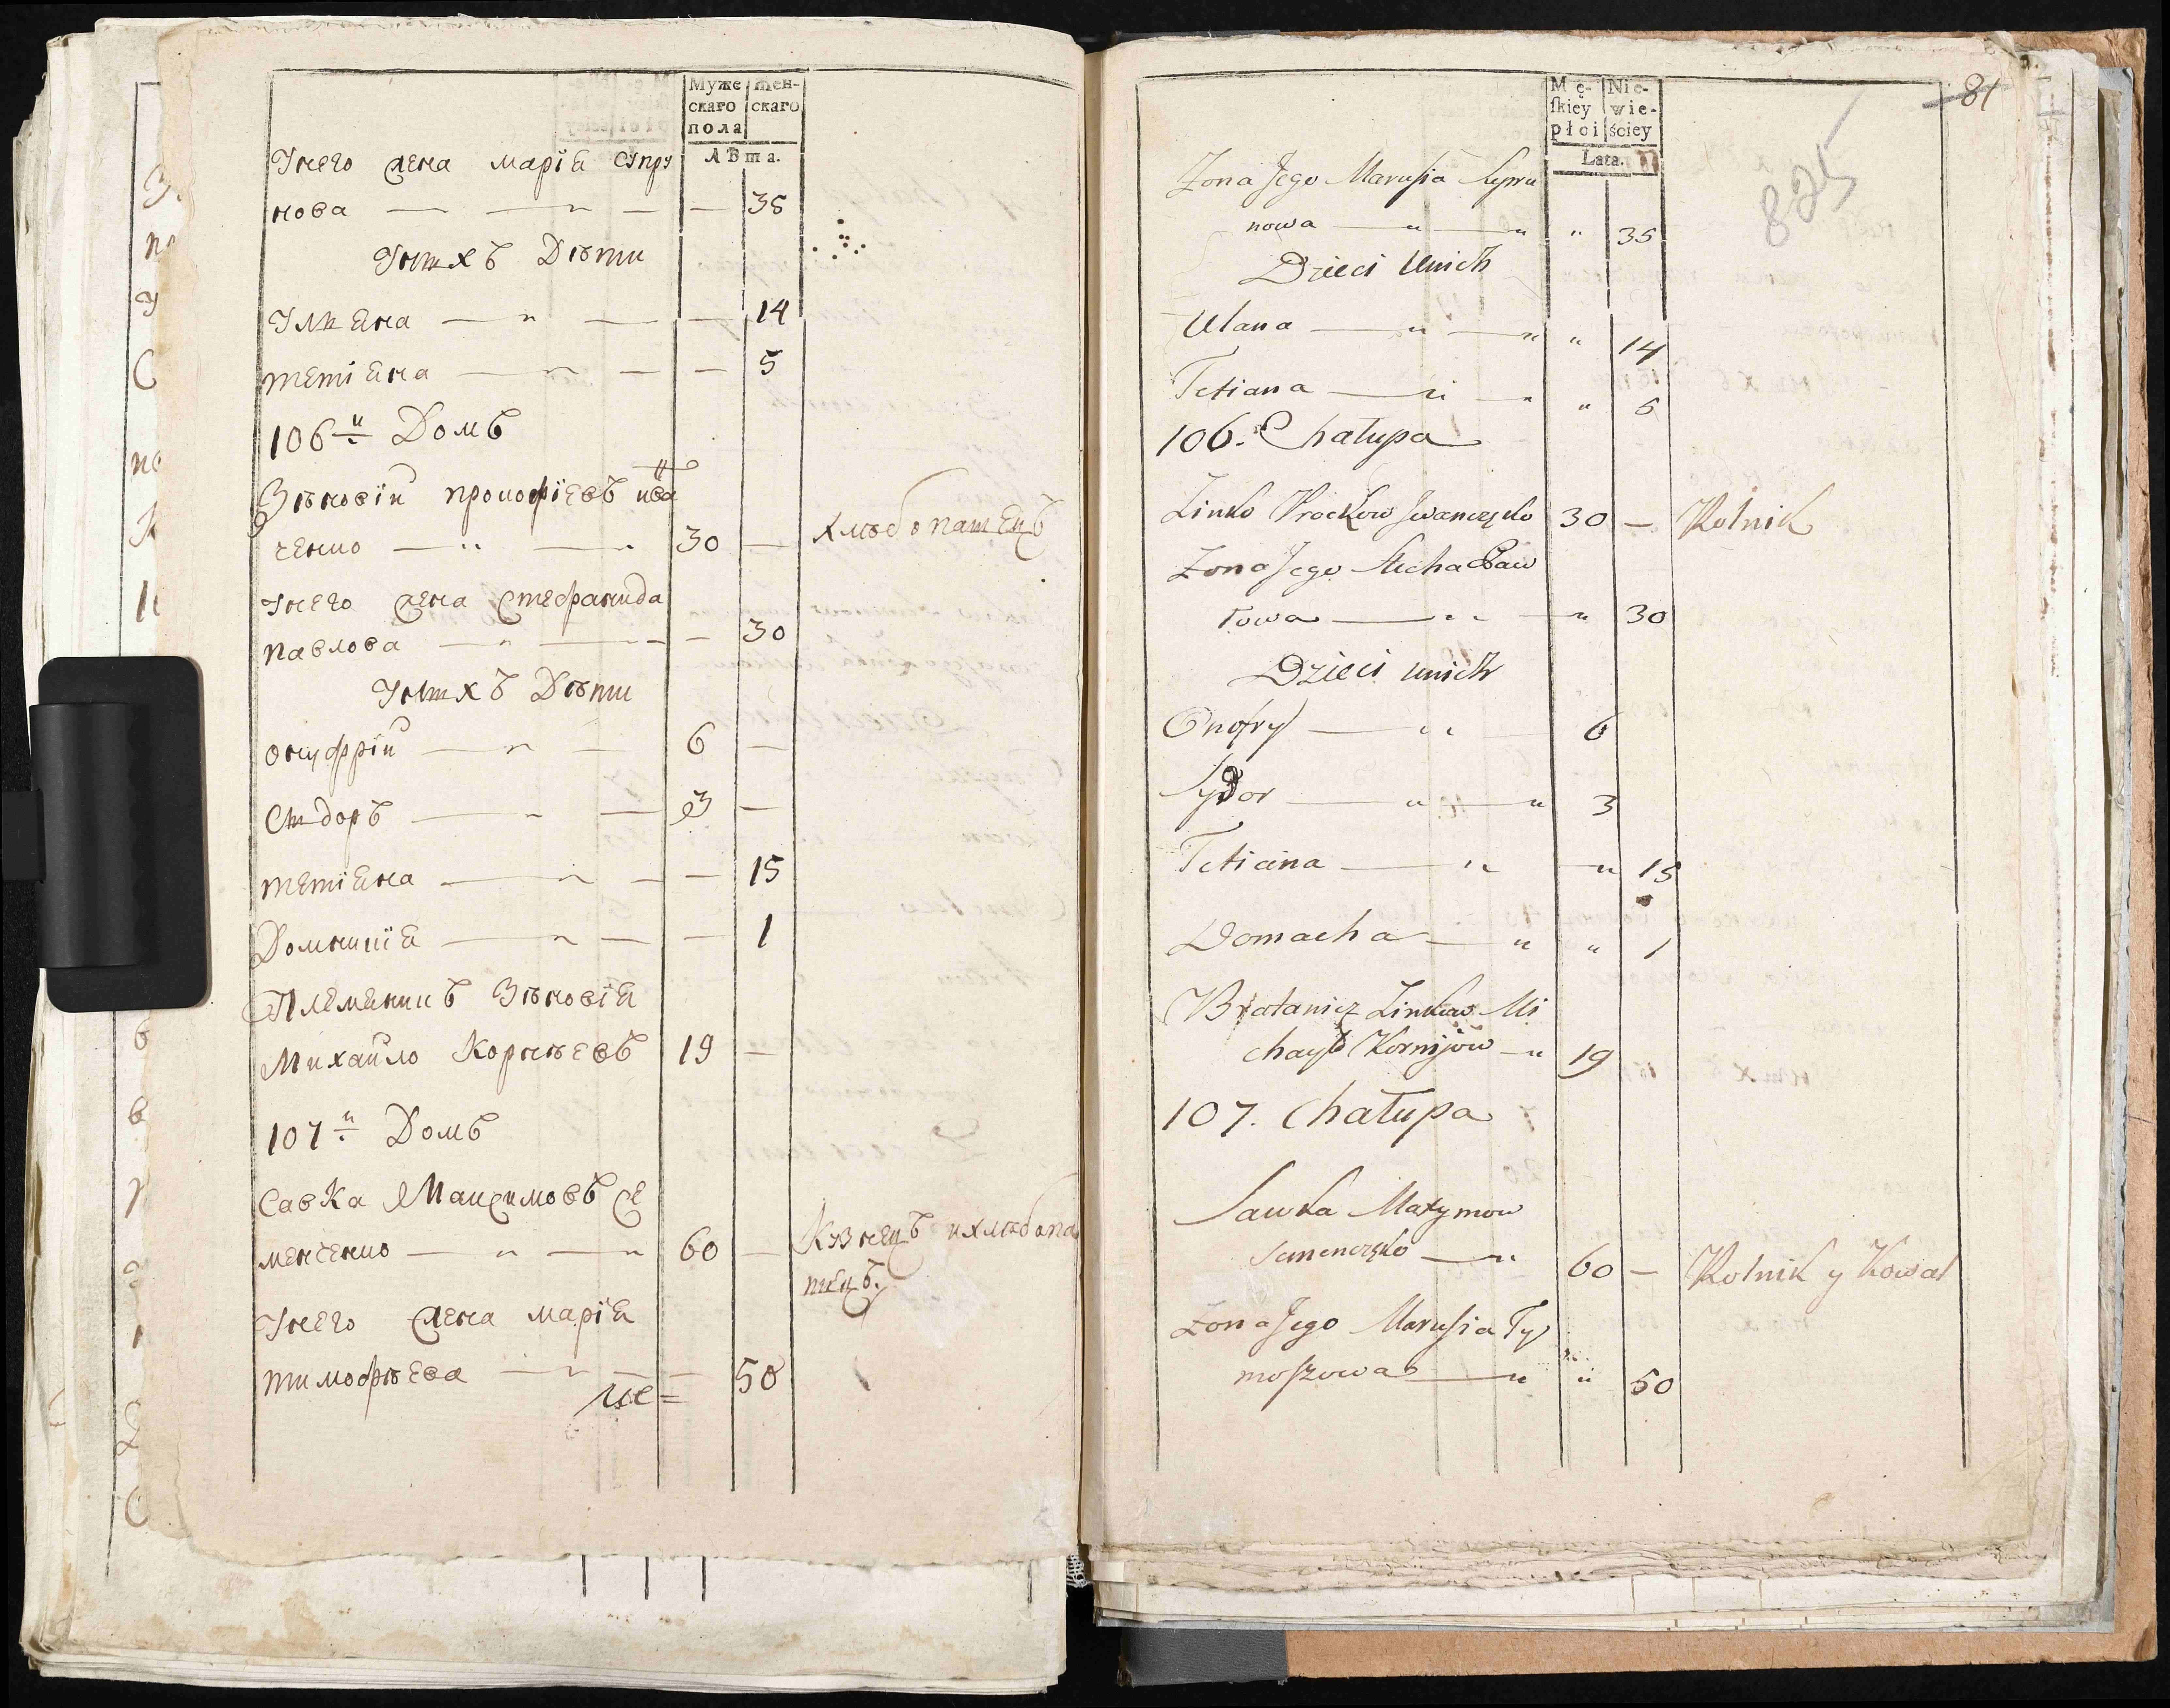 Муже
скаго
пола
жен-
скаго
Лѣта.
Унего жена Марія Супру
нова — " — — 35
Унихъ Дѣти
Улияна — " — — 14
Тетіяна — " — — 5
106й Домъ
Зѣновій Прокофіевъ Ива
ченко — " — " 30 — хлѣбопашецъ
Унего жена Стефанида
Павлова — " — — 30
Унихъ Дѣти
Онуфрій — " — 6 —
Сидоръ — " — 3 —
Тетіяна — " — — 15
Домникія — " — — 1
Племяникъ Зѣновія
Михайло Корнѣевъ 19 —
107й Домъ
Савка Максимовъ Се
менченко — " — " 60 — Кузнецъ ихлѣбопа
шецъ.
Унего жена Марія
Тимофѣева — " — — 50
81
825
Mę-
skiey
płci
Nie-
wie-
ściey
Lata.
Zona Jego Marusia Supru
nowa — " — " " 35
Dzieci Unich
Ulana — " — " " 14
Tetiana — " — " " 5
106. Chałupa
Zinko Prockow Iwanczęko 30 — Rolnik
Zona Jego Stecha Paw
łowa — " — " 30
Dzieci unich
Onofry — " — 6
Sydor — " — " 3
Teticina — " — " 15
Domacha — " " 1
Bratanicz Zinkow Mi
chayło Kornijow — " 19
107. Chałupa
Sawka Maxymow
Semenczęko — " 60 — Rolnik y Kowal
Zona Jego Marusia Ty
moszowa — " " 50